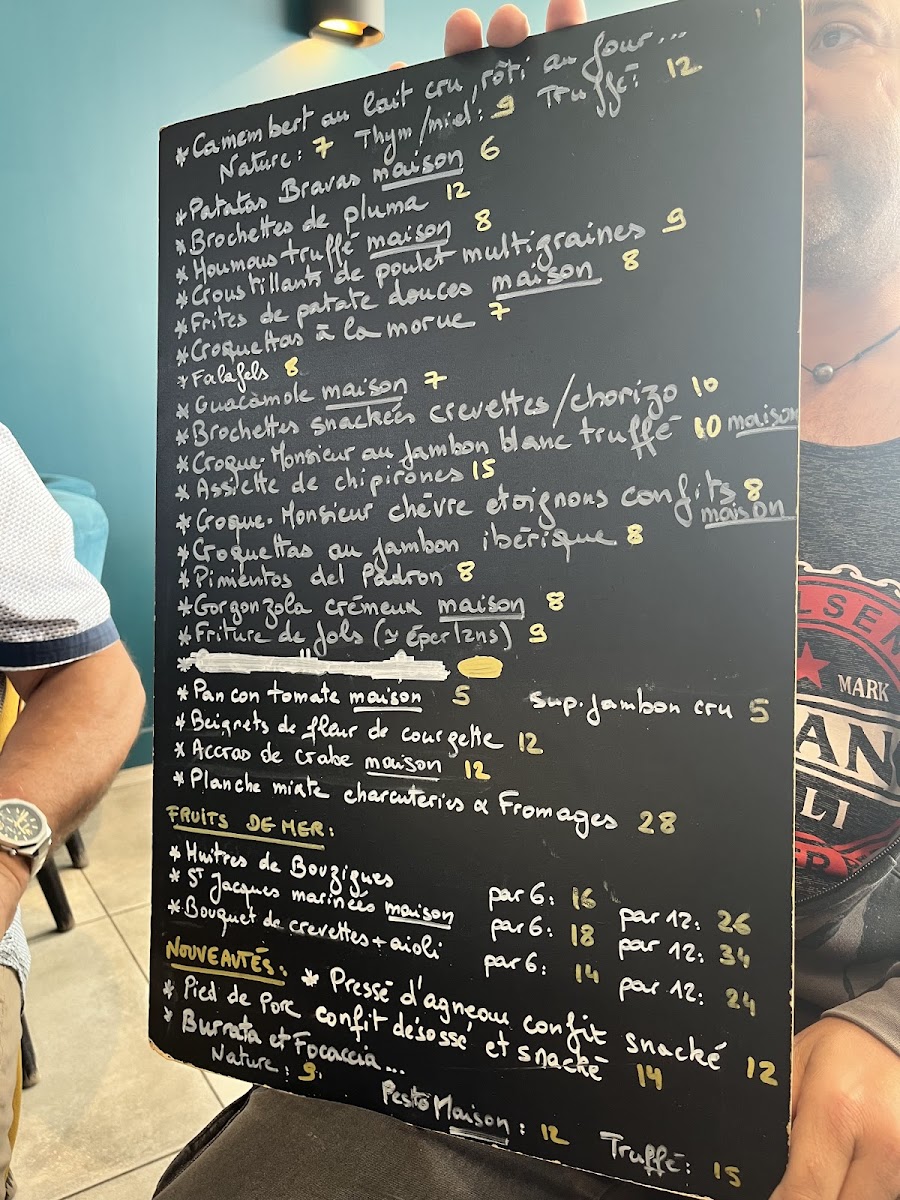 *Camembert au lait cru, rôti au four...
Nature: 7 Thym/miel: 9 Truffé: 12
*Patatas Bravas maison 6
*Brochettes de pluma 12
*Houmous truffé maison 8
*Croustillants de poulet multigraines 9
*Frites de patate douces maison 8
*Croquettas à la morue 7
*Falafels 8
*Guacamole maison 7
*Brochettes snackées crevettes/chorizo 10
*Croque-Monsieur au jambon blanc truffé 10 maison
*Assiette de chipirones 15
*Croque-Monsieur chèvre et oignons confits 8
maison
*Croquettas au jambon ibérique 8
*Pimientos del Padron 8
*Gorgonzola crémeux maison 8
*Friture de Jols (≃ éperlans) 9
*
*Pan con tomate maison 5 sup. jambon cru 5
*Beignets de fleur de courgette 12
*Accras de crabe maison 12
*Planche mixte charcuteries & Fromages 28
FRUITS DE MER:
*Huîtres de Bouzigues par 6: 16 par 12: 26
*St Jacques marinées maison par 6: 18 par 12: 34
*Bouquet de crevettes + aioli par 6: 14 par 12: 24
NOUVEAUTÉS: * Pressé d'agneau confit snacké 12
* Pied de Porc confit désossé et snacké 14
* Burrata et Focaccia...
Nature: 9 Pesto Maison: 12 Truffé: 15
LSEN
MARK
AN
LI